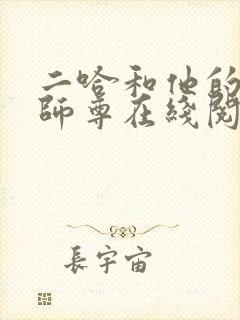 二哈和他的
師尊在綫閱
長宇宙